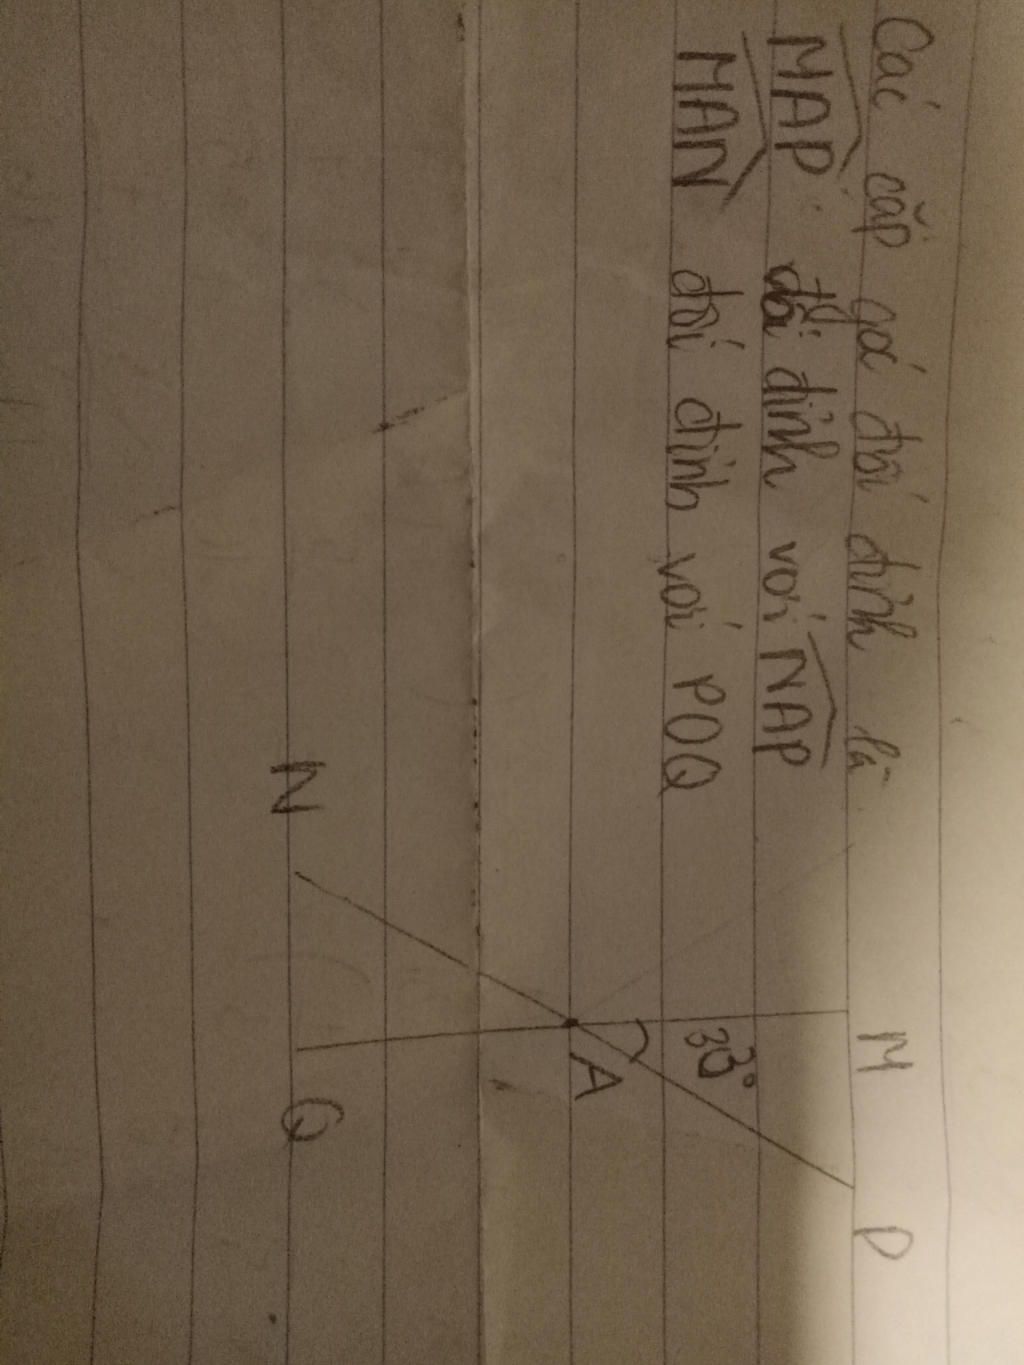 Các cặp góc đối đỉnh là
MAP đối đỉnh với NAP
MAN đối đỉnh với POQ
M
P
33°
A
N
Q